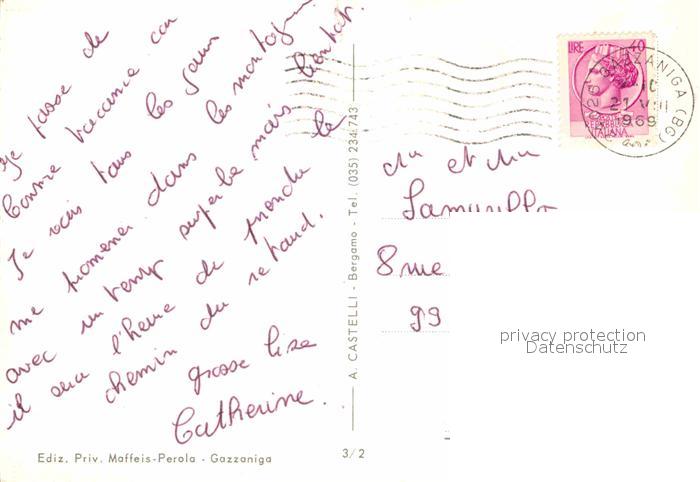 Je passe de
bonne vacance car
Je vais tous les jours
me promener dans les montagnes
avec un temps superbe mais bientot
il sera l'heure de prendre le
chemin du retard.
grosse bise
Catherine.
Ediz. Priv. Maffeis-Perola - Gazzaniga
3/2
A. CASTELLI - Bergamo - Tel. (035) 234.743
LIRE 40
ITALIANA
GAZZANIGA (BG)
21 VIII
1969
8 rue
99
privacy protection
Datenschutz